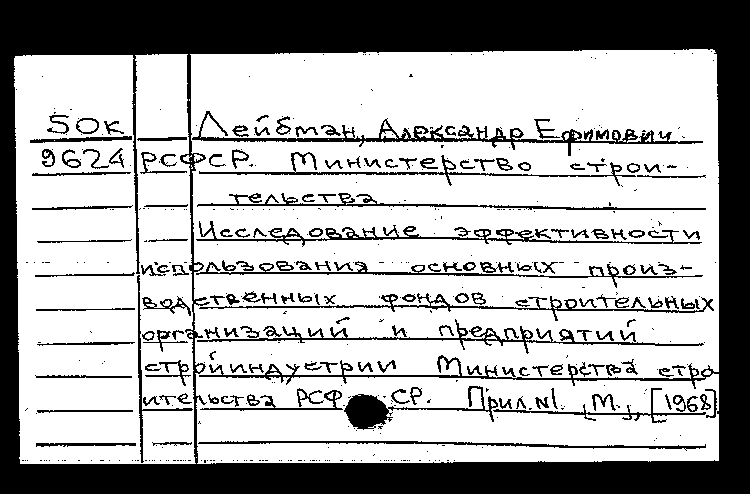 50к Лейбман, Александр Ефимович
9624 РСФСР. Министерство строи-
тельства
Исследование эффективности
использования основных произ-
водственных фондов строительных
организаций и предприятий
стройиндустрии Министерства стро
ительства РСФСР. Прил. №1. [М.], [1968]